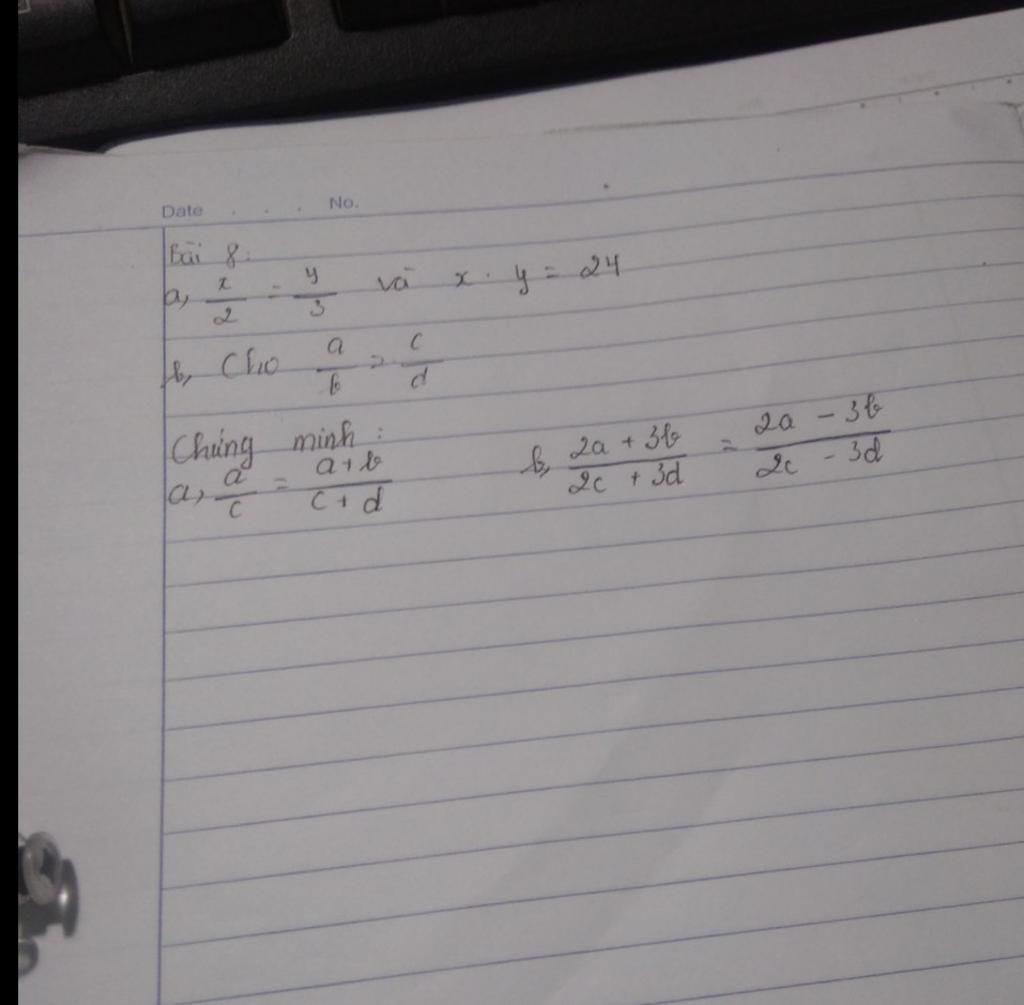 Date . . . No.
Bài 8:
a, x/2 = y/3 và x . y = 24
b, Cho a/b = c/d
Chứng minh:
a, a/c = a+b/c+d b, 2a + 3b/2c + 3d = 2a - 3b/2c - 3d